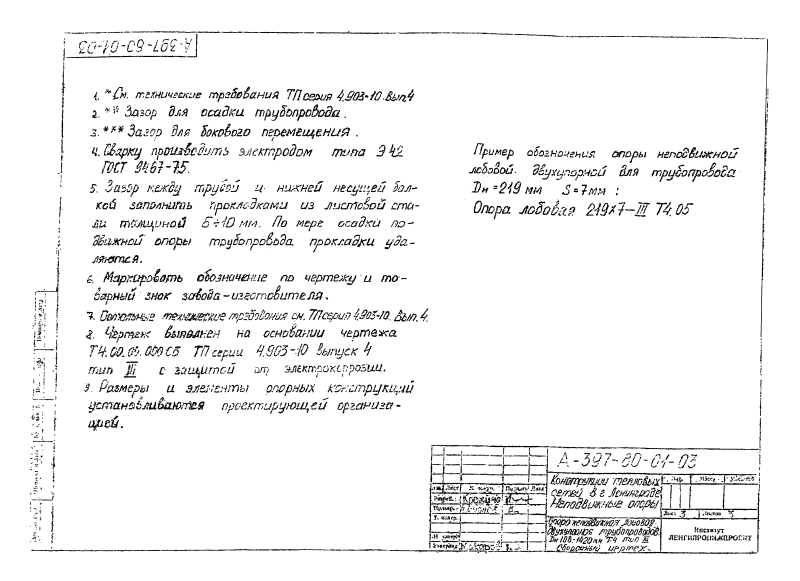 А-397-80-01-03
1. * См. технические требования ТП серия 4.903-10. Вып.4
2. ** Зазор для осадки трубопровода.
3. *** Зазор для бокового перемещения.
4. Сварку производить электродом типа Э42
ГОСТ 9467-75.
5. Зазор между трубой и нижней несущей бал-
кой заполнить прокладками из листовой ста-
ли толщиной 5÷10 мм. По мере осадки по-
движной опоры трубопровода прокладки уда-
ляются.
6. Маркировать обозначение по чертежу и то-
варный знак завода-изготовителя.
7. Остальные технические требования см. ТП серия 4.903-10. Вып. 4.
8. Чертеж выполнен на основании чертежа
Т4.00.00.000СБ ТП серии 4.903-10 Выпуск 4
тип III с защитой от электрокоррозии.
9. Размеры и элементы опорных конструкций
устанавливаются проектирующей организа-
цией.
Пример обозначения опоры неподвижной
лобовой двухупорной для трубопровода
Dн = 219 мм S = 7 мм :
Опора лобовая 219×7-III Т4.05
А-397-80-01-03
Конструкции тепловых
сетей в г Ленинграде
Неподвижные опоры
Лист 3 Листов 3
Опора неподвижная лобовая
двухупорная трубопроводов
Dн 108-1420 мм Т4 тип III
Сборочный чертеж.
Институт
ЛЕНГИПРОИНЖПРОЕКТ